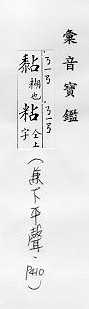 彙音寶鑑
黏糊也粘仝上字
(兼下平聲,P410)